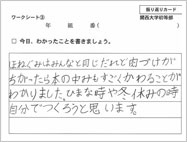 振り返りカード
ワークシート③
関西大学初等部
年 組 番( )
□ 今日、わかったことを書きましょう。
ほねぐみはみんなと同じだれど肉づけが
ちがったら本の中みもすごくかわることが
わかりました。ひまな時や冬休みの時
自分でつくろうと思います。